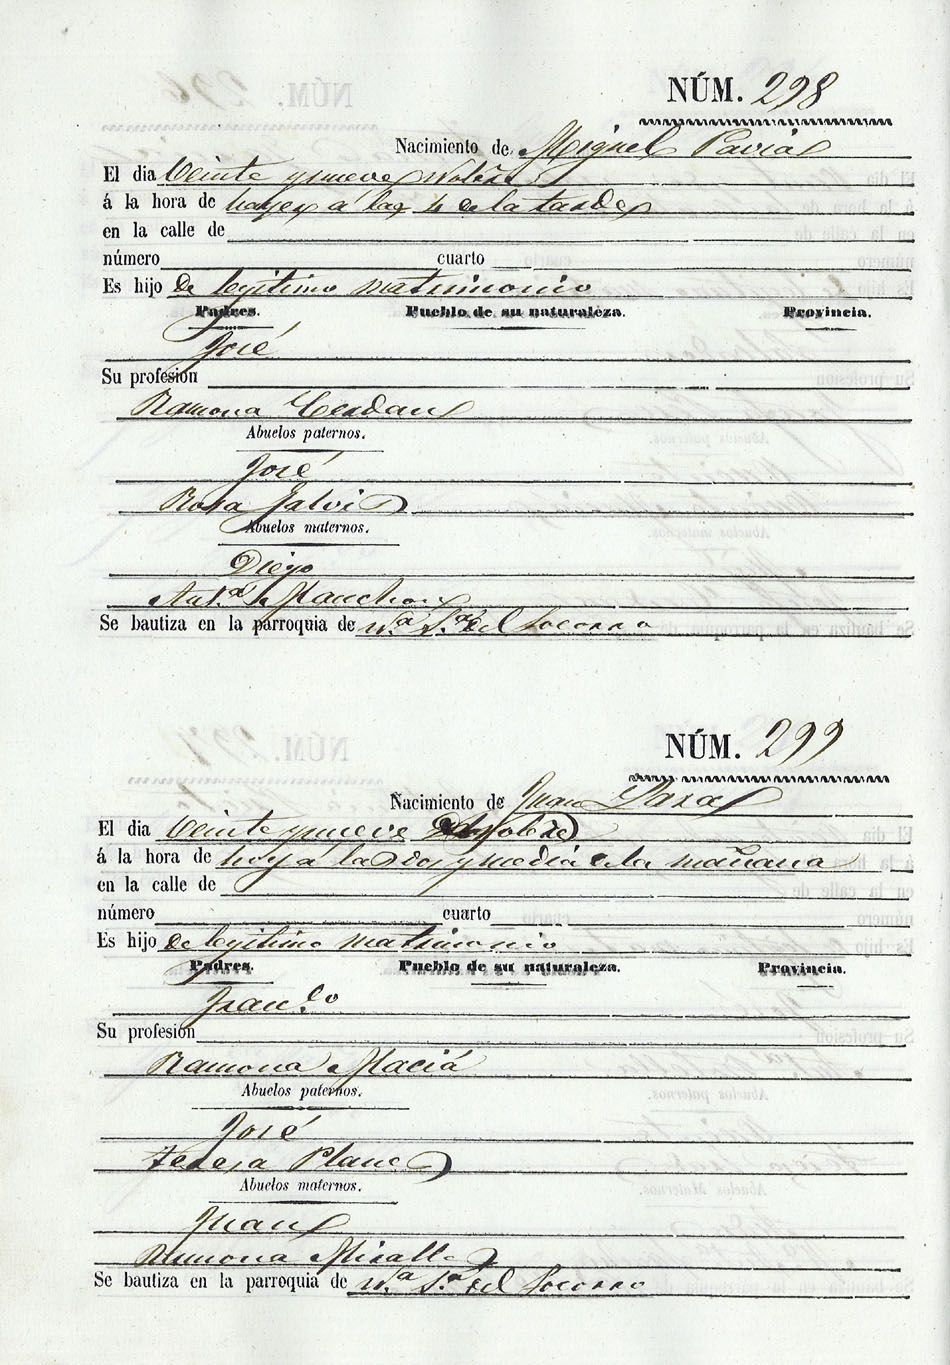 NÚM. 298
Nacimiento de Miguel Pavia
El dia Veinte y nueve 8bre
á la hora de hayer a las 4 de la tarde
en la calle de
número cuarto
Es hijo de legitimo matrimonio
Padres. Pueblo de su naturaleza. Provincia.
José
Su profesión
Ramona Cerdan
Abuelos paternos.
José
Rosa Galvi
Abuelos maternos.
Diego
Ant.a Manchon
Se bautiza en la parroquia de N.a S.a del Socorro
NÚM. 299
Nacimiento de Juan
El dia Veinte y nueve
á la hora de hoy a las dos y media de la mañana
en la calle de
número cuarto
Es hijo de legitimo matrimonio
Padres. Pueblo de su naturaleza. Provincia.
Fran.co
Su profesión
Ramona Maciá
Abuelos paternos.
José
Teresa Planes
Abuelos maternos.
Juan
Ramona Miralles
Se bautiza en la parroquia de N.a S.a del Socorro